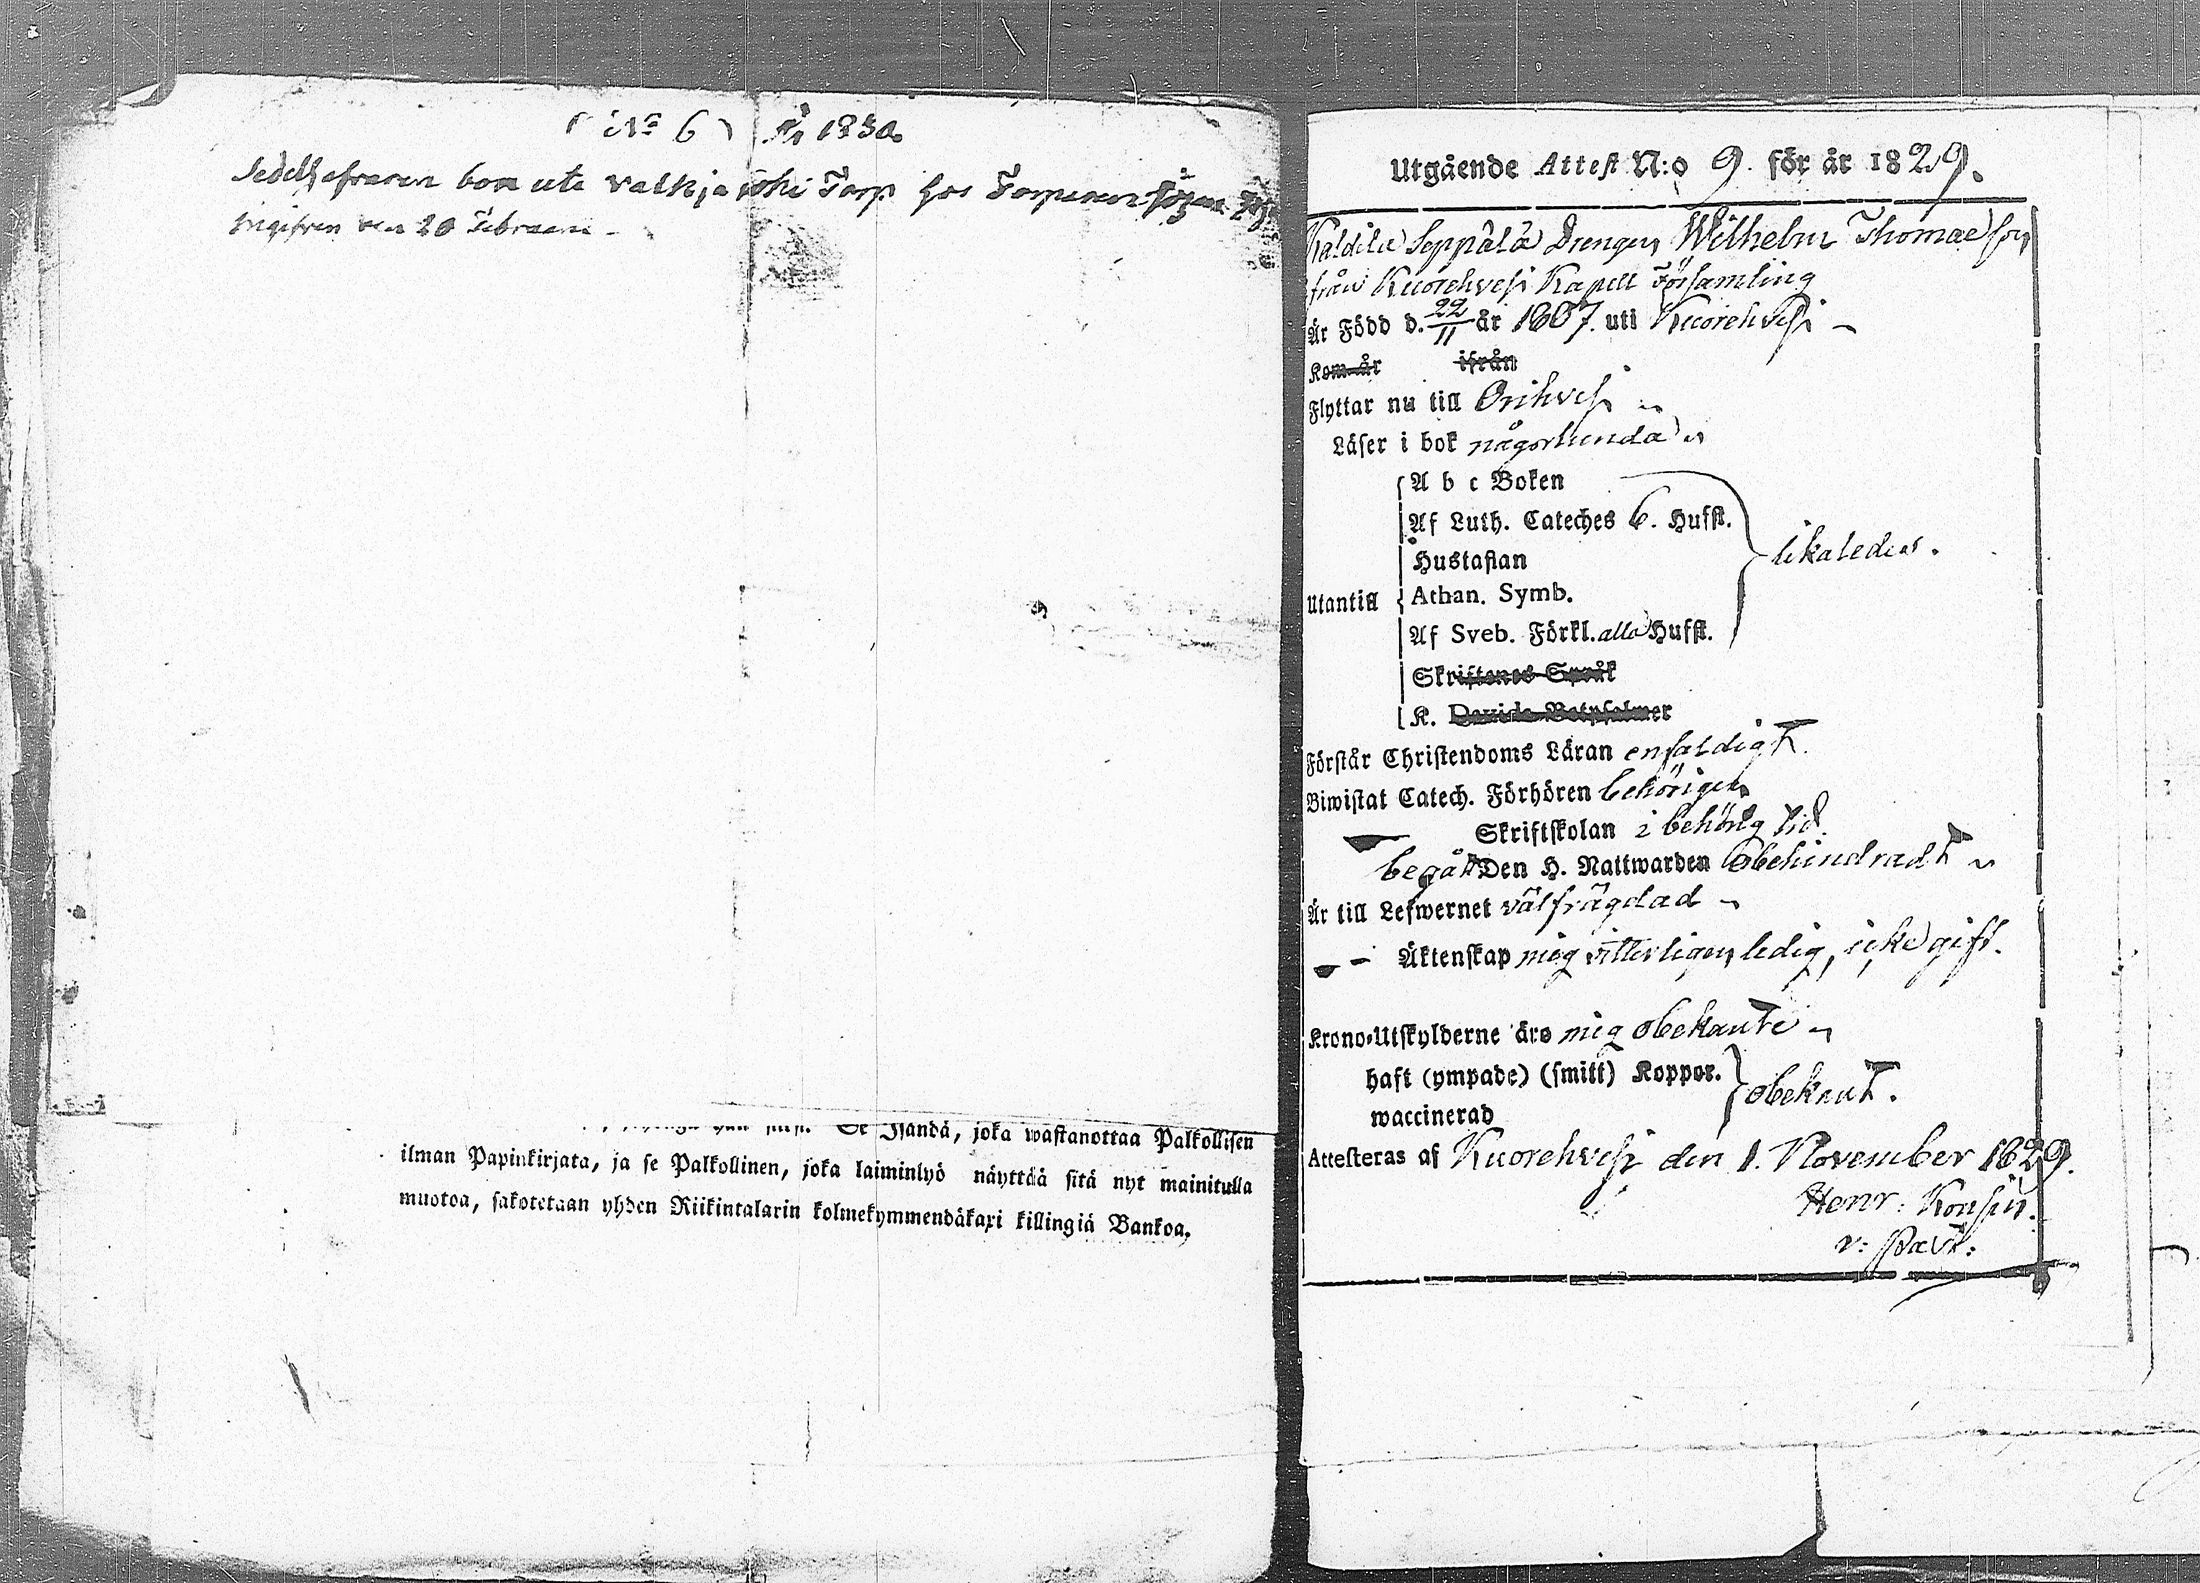 (No 6) 1830.
Sedelhafvaren bor ute Valkjajohi Torp hos Torparen
Ingifven den 20 Februari
Se Isändä, joka wastanottaa Palkollisen
ilman Papinkirjata, ja se Palkollinen, joka laiminlyö näyttää sitä nyt mainitulla
muotoa, sakotetaan yhden Riikintalarin kolmekymmendäkaxi killingiä Bankoa.
Utgående Attest N:o 9. för år 1829.
Seppälä Drengen Wilhelm Thomae son
från Kuorehvesi Kapell Församling
Är Född d. 22/11 år 1807. uti Kuorehvesi
Kom år ifrån
Flyttar nu till Orihvesi
Läser i bok någorlunda
Utantill
A b c Boken
Af Luth. Cateches 6. Hufst.
Hustaflan
Athan. Symb.
Af Sveb. Förkl. alla Hufst.
Skriftenes Språk
K. Davids Botpsalmer
likaledes.
Förstår Christendoms Läran enfaldigt.
Biwistat Catech. Förhören behörigen
Skriftskolan i behörig tid.
begått Den H. Nattwarden obehindradt
Är till Lefwernet välfrägdad
Äktenskap mig vitterligen ledig, icke gift.
Krono-Utskylderne äro mig obekante
haft (ympade) (smitt) Koppor.
waccinerad
obekant.
Attesteras af Kuorehvesi den 1. November 1829.
Henr: Konsin.
v: Past: